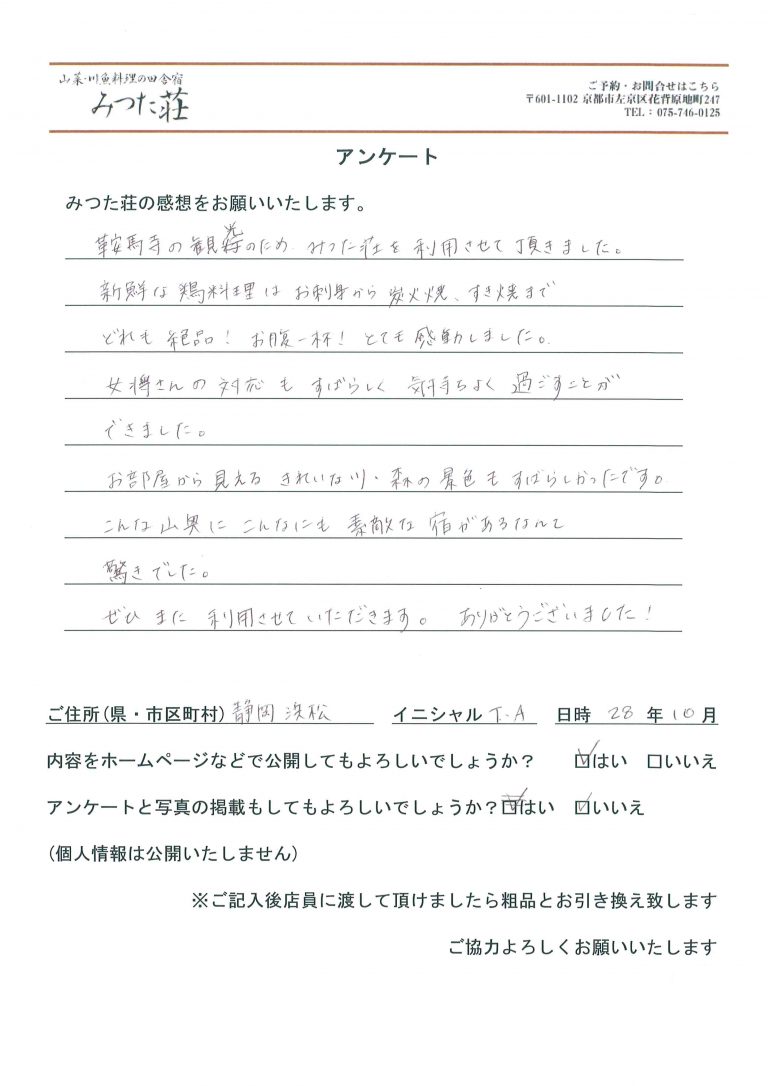 山菜・川魚料理の田舎宿
みつた荘
ご予約・お問合せはこちら
〒601-1102 京都市左京区花脊原地町247
TEL：075-746-0125
アンケート
みつた荘の感想をお願いいたします。
鞍馬寺の観光のため みつた荘を利用させて頂きました。
新鮮な鶏料理は お刺身から炭火焼、すき焼まで
どれも絶品！ お腹一杯！ とても感動しました。
女将さんの対応も すばらしく 気持ちよく 過ごすことが
できました。
お部屋から見える きれいな川・森の景色も すばらしかったです。
こんな山奥に こんなにも 素敵な宿があるなんて
驚きでした。
ぜひ また 利用させていただきます。 ありがとうございました！
ご住所(県・市区町村) 静岡 浜松 イニシャル T.A 日時 28 年 10 月
内容をホームページなどで公開してもよろしいでしょうか？ ☑はい □いいえ
アンケートと写真の掲載もしてもよろしいでしょうか？☑はい ☑いいえ
(個人情報は公開いたしません)
※ご記入後店員に渡して頂けましたら粗品とお引き換え致します
ご協力よろしくお願いいたします